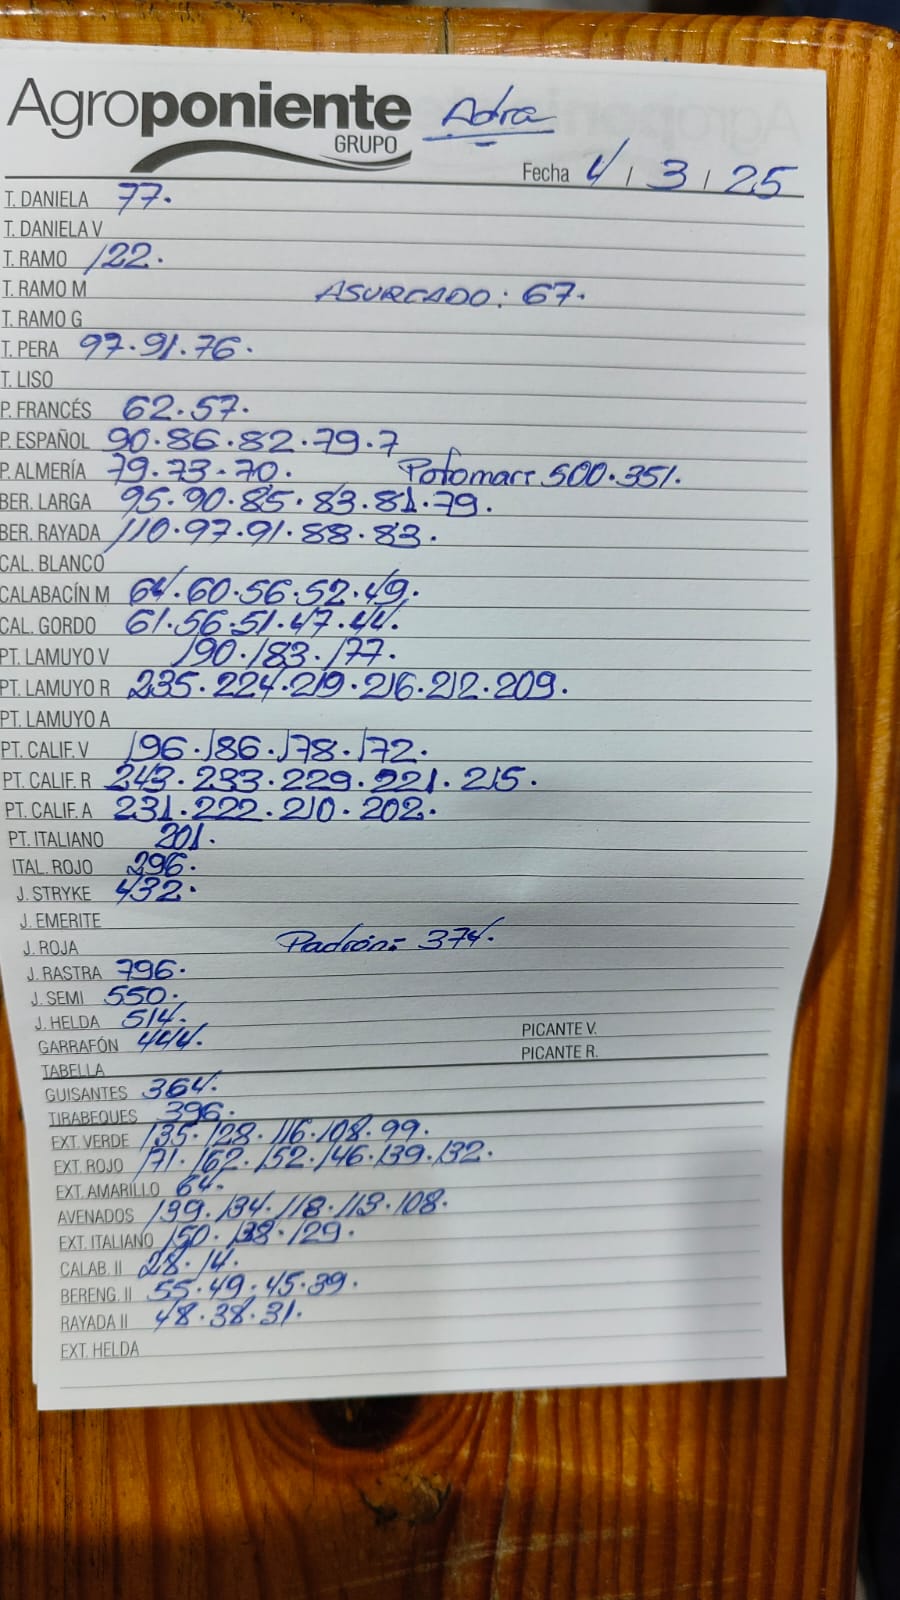 Agroponiente Adra
GRUPO
Fecha 4 / 3 / 25
T. DANIELA 77.
T. DANIELA V
T. RAMO 122.
T. RAMO M ASURCADO: 67.
T. RAMO G
T. PERA 97.91.76.
T. LISO
P. FRANCÉS 62.57.
P. ESPAÑOL 90.86.82.79.7
P. ALMERÍA 79.73.70. Potomarr 500.351.
BER. LARGA 95.90.85.83.81.79.
BER. RAYADA 110.97.91.88.83.
CAL. BLANCO
CALABACÍN M 64.60.56.52.49.
CAL. GORDO 61.56.51.47.44.
PT. LAMUYO V 190.183.177.
PT. LAMUYO R 235.224.219.216.212.209.
PT. LAMUYO A
PT. CALIF. V 196.186.178.172.
PT. CALIF. R 243.233.229.221.215.
PT. CALIF. A 231.222.210.202.
PT. ITALIANO 201.
ITAL. ROJO 296.
J. STRYKE 432.
J. EMERITE
J. ROJA Padrón= 374.
J. RASTRA 796.
J. SEMI 550.
J. HELDA 514.
PICANTE V.
GARRAFÓN 444.
PICANTE R.
TABELLA
GUISANTES 364.
TIRABEQUES 396.
EXT. VERDE 135.128.116.108.99.
EXT. ROJO 171.162.152.146.139.132.
EXT. AMARILLO 64.
AVENADOS 139.134.118.113.108.
EXT. ITALIANO 150.138.129.
CALAB. II 28.14.
BERENG. II 55.49.45.39.
RAYADA II 48.38.31.
EXT. HELDA